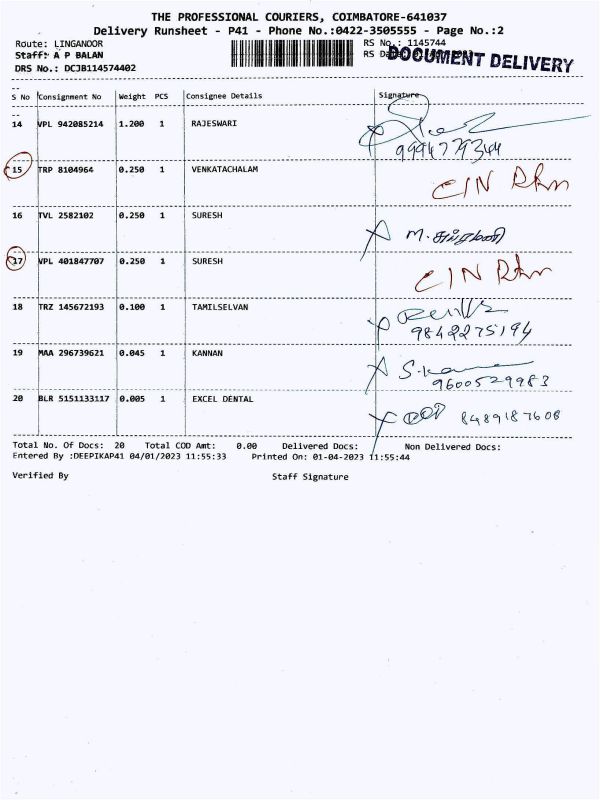 THE PROFESSIONAL COURIERS, COIMBATORE-641037
Delivery Runsheet - P41 - Phone No.:0422-3505555 - Page No.:2
Route: LINGANOOR RS No.: 1145744
Staff: A P BALAN RS DOCUMENT DELIVERY
DRS No.: DCJB114574402
S No Consignment No Weight PCS Consignee Details Signature
14 VPL 942085214 1.200 1 RAJESWARI
9994779344
15 TRP 8104964 0.250 1 VENKATACHALAM C/N Rtn
16 TVL 2582102 0.250 1 SURESH M. சுப்ரமணி
17 VPL 401847707 0.250 1 SURESH C/N Rtn
18 TRZ 145672193 0.100 1 TAMILSELVAN
9842275194
19 MAA 296739621 0.045 1 KANNAN
9600529983
20 BLR 5151133117 0.005 1 EXCEL DENTAL 8489187608
Total No. Of Docs: 20 Total COD Amt: 0.00 Delivered Docs: Non Delivered Docs:
Entered By :DEEPIKAP41 04/01/2023 11:55:33 Printed On: 01-04-2023 11:55:44
Verified By Staff Signature